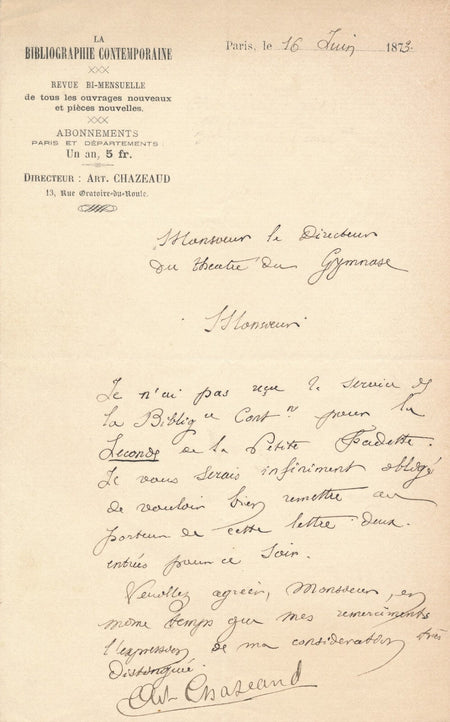 LA
BIBLIOGRAPHIE CONTEMPORAINE
XXX
REVUE BI-MENSUELLE
de tous les ouvrages nouveaux
et pièces nouvelles.
XXX
ABONNEMENTS
PARIS ET DÉPARTEMENTS :
Un an, 5 fr.
DIRECTEUR : ART. CHAZEAUD
13, Rue Oratoire-du-Roule.
Paris, le 16 Juin 1873.
Monsieur le Directeur
du théatre du Gymnase
Monsieur
Je n'ai pas reçu le service de
la Bibliog^ue Cont^ne pour la
Seconde de la Petite Fadette.
Je vous serais infiniment obligé
de vouloir bien remettre au
porteur de cette lettre deux
entrées pour ce soir.
Veuillez agréer, Monsieur, en
même temps que mes remerciments
l'expression de ma considération très
distinguée
Art. Chazeaud